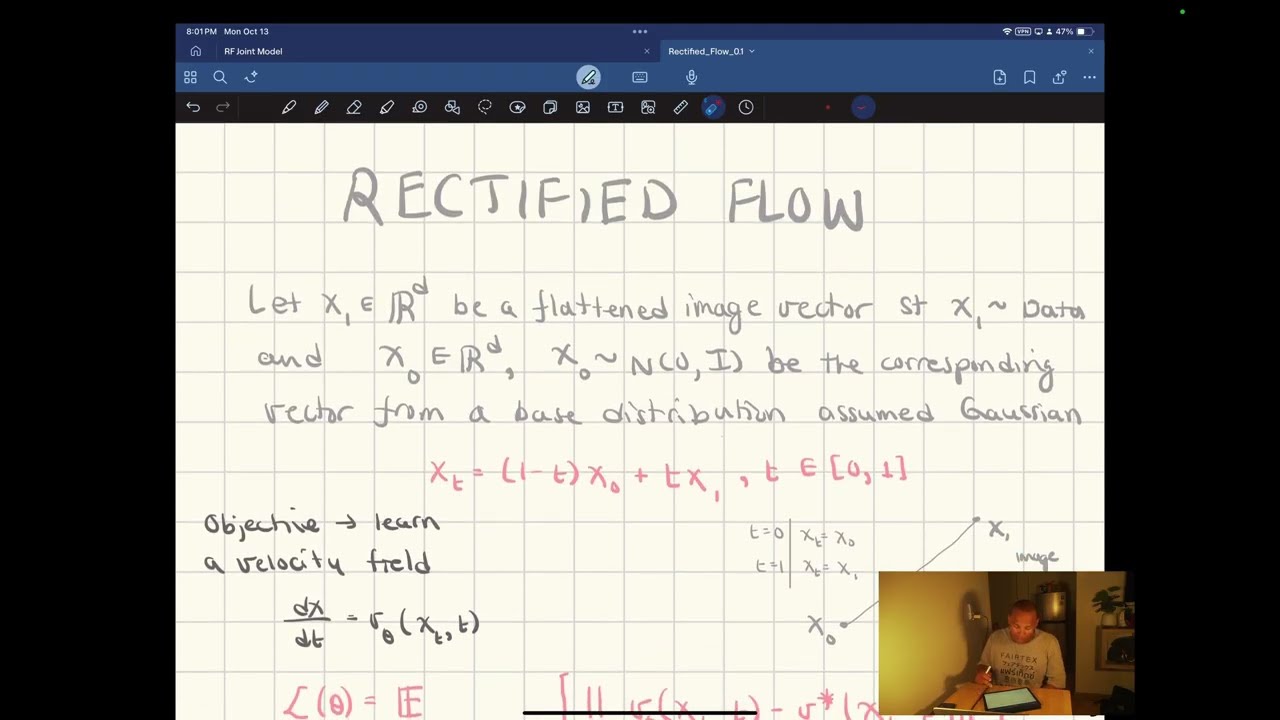 8:01 PM Mon Oct 13
VPN 47%
RF Joint Model
Rectified_Flow_0.1
RECTIFIED FLOW
Let x₁ ∈ ℝᵈ be a flattened image vector st x₁ ~ Data
and x₀ ∈ ℝᵈ, x₀ ~ N(0, I) be the corresponding
vector from a base distribution assumed Gaussian
xₜ = (1-t)x₀ + tx₁, t ∈ [0, 1]
Objective → learn
a velocity field
dx/dt = v_θ(xₜ, t)
t=0 | xₜ = x₀
t=1 | xₜ = x₁
x₁
image
x₀
FAIRTEX
L(θ) = 𝔼 [ ||